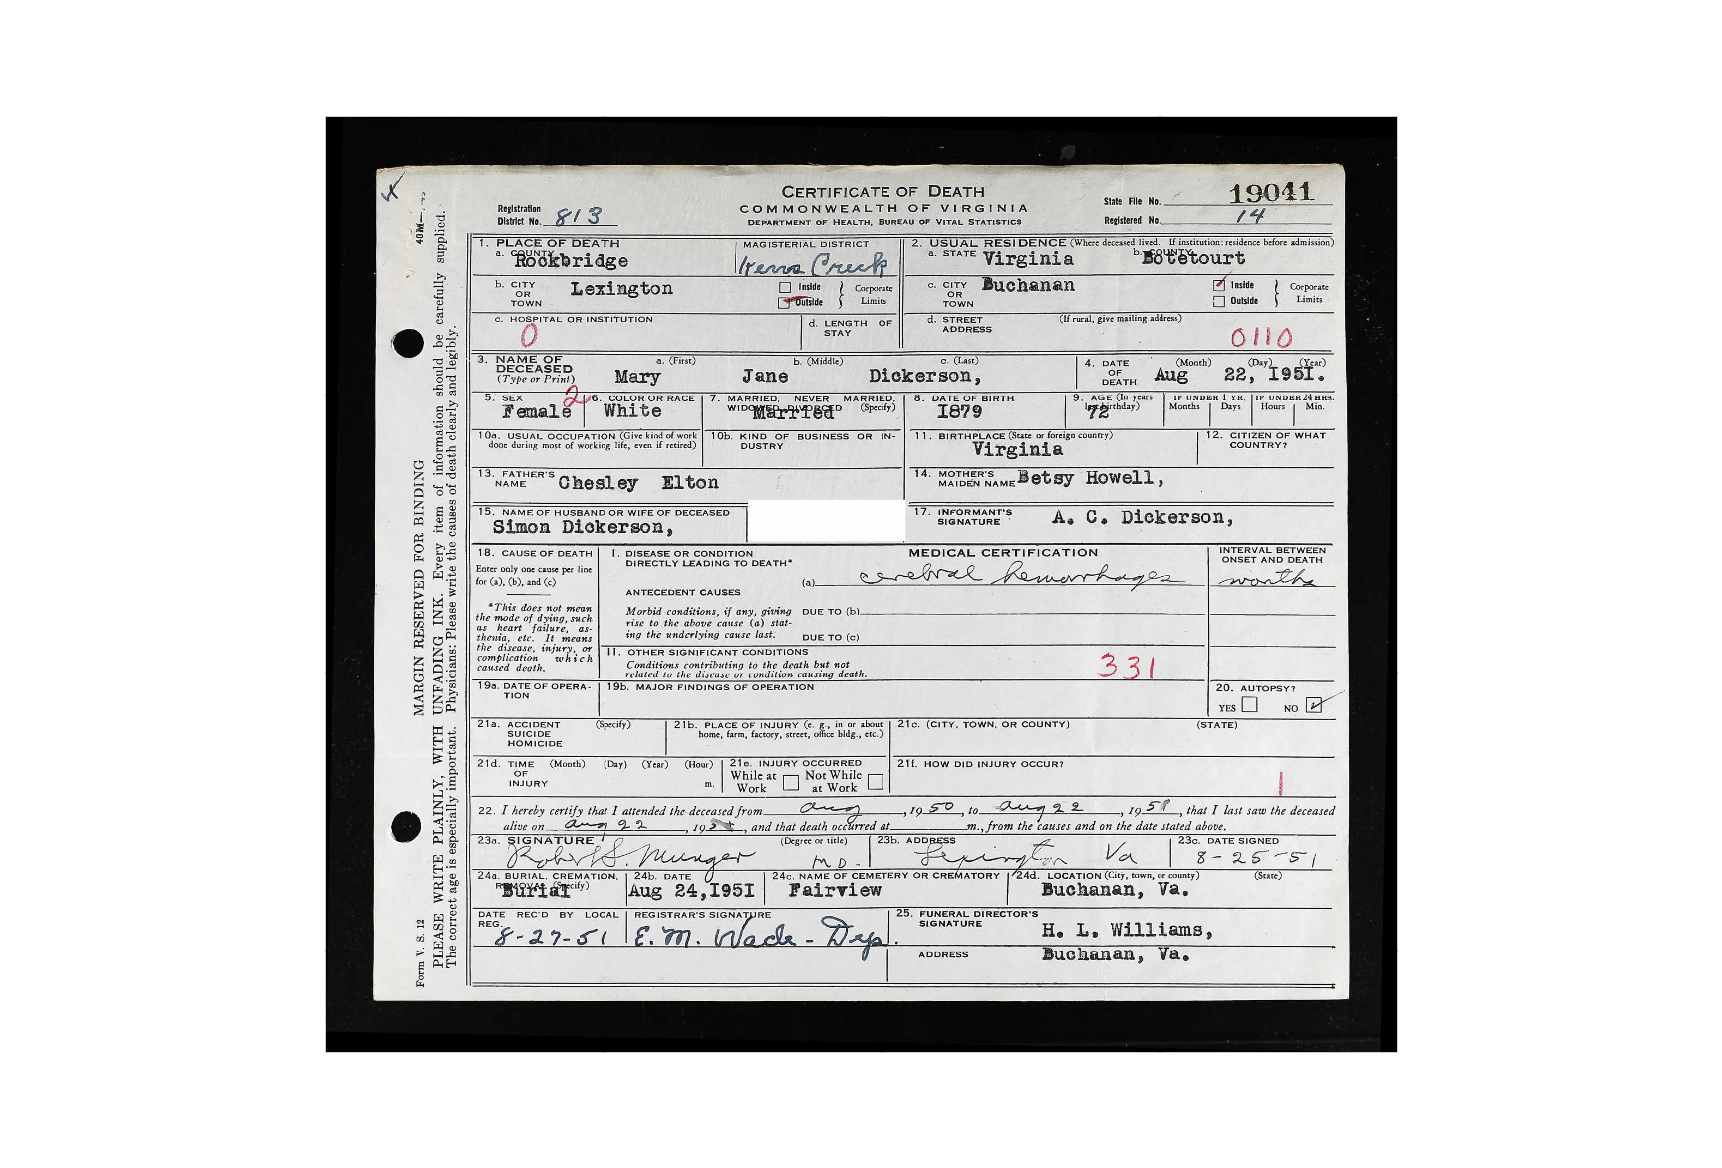 CERTIFICATE OF DEATH
COMMONWEALTH OF VIRGINIA
DEPARTMENT OF HEALTH, BUREAU OF VITAL STATISTICS
Registration District No. 813
State File No. 19041
Registered No. 14
1. PLACE OF DEATH
a. COUNTY Rockbridge
MAGISTERIAL DISTRICT Kerrs Creek
2. USUAL RESIDENCE (Where deceased lived. If institution: residence before admission)
a. STATE Virginia b. COUNTY Botetourt
b. CITY OR TOWN Lexington Inside Outside Corporate Limits
c. CITY OR TOWN Buchanan Inside Outside Corporate Limits
c. HOSPITAL OR INSTITUTION 0
d. LENGTH OF STAY
d. STREET ADDRESS (If rural, give mailing address) 0110
3. NAME OF DECEASED (Type or Print)
a. (First) Mary b. (Middle) Jane c. (Last) Dickerson,
4. DATE OF DEATH (Month) (Day) (Year) Aug 22, I95I.
5. SEX Female 2
6. COLOR OR RACE White
7. MARRIED, NEVER MARRIED, WIDOWED, DIVORCED (Specify) Married
8. DATE OF BIRTH I879
9. AGE (In years last birthday) 72
IF UNDER 1 YR. Months Days
IF UNDER 24 HRS. Hours Min.
10a. USUAL OCCUPATION (Give kind of work done during most of working life, even if retired)
10b. KIND OF BUSINESS OR INDUSTRY
11. BIRTHPLACE (State or foreign country) Virginia
12. CITIZEN OF WHAT COUNTRY?
13. FATHER'S NAME Chesley Elton
14. MOTHER'S MAIDEN NAME Betsy Howell,
15. NAME OF HUSBAND OR WIFE OF DECEASED
Simon Dickerson,
17. INFORMANT'S SIGNATURE A. C. Dickerson,
18. CAUSE OF DEATH
Enter only one cause per line for (a), (b), and (c)
*This does not mean the mode of dying, such as heart failure, asthenia, etc. It means the disease, injury, or complication which caused death.
MEDICAL CERTIFICATION
INTERVAL BETWEEN ONSET AND DEATH
I. DISEASE OR CONDITION DIRECTLY LEADING TO DEATH*
(a) cerebral hemorrhages months
ANTECEDENT CAUSES
Morbid conditions, if any, giving rise to the above cause (a) stating the underlying cause last.
DUE TO (b)
DUE TO (c)
II. OTHER SIGNIFICANT CONDITIONS
Conditions contributing to the death but not related to the disease or condition causing death.
331
19a. DATE OF OPERATION
19b. MAJOR FINDINGS OF OPERATION
20. AUTOPSY?
YES NO
21a. ACCIDENT SUICIDE HOMICIDE (Specify)
21b. PLACE OF INJURY (e. g., in or about home, farm, factory, street, office bldg., etc.)
21c. (CITY, TOWN, OR COUNTY) (STATE)
21d. TIME OF INJURY (Month) (Day) (Year) (Hour) m.
21e. INJURY OCCURRED While at Work Not While at Work
21f. HOW DID INJURY OCCUR?
1
22. I hereby certify that I attended the deceased from aug, 1950, to aug 22, 1951, that I last saw the deceased
alive on aug 22, 19, and that death occurred at m., from the causes and on the date stated above.
23a. SIGNATURE (Degree or title) Robert S. Munger MD.
23b. ADDRESS Lexington Va
23c. DATE SIGNED 8-25-51
24a. BURIAL, CREMATION, REMOVAL (Specify) Burial
24b. DATE Aug 24,I95I
24c. NAME OF CEMETERY OR CREMATORY Fairview
24d. LOCATION (City, town, or county) (State) Buchanan, Va.
DATE REC'D BY LOCAL REG. 8-27-51
REGISTRAR'S SIGNATURE E. M. Wade - Dep.
25. FUNERAL DIRECTOR'S SIGNATURE H. L. Williams,
ADDRESS Buchanan, Va.
Form V. S. 12
MARGIN RESERVED FOR BINDING
PLEASE WRITE PLAINLY, WITH UNFADING INK. Every item of information should be carefully supplied.
The correct age is especially important. Physicians: Please write the causes of death clearly and legibly.